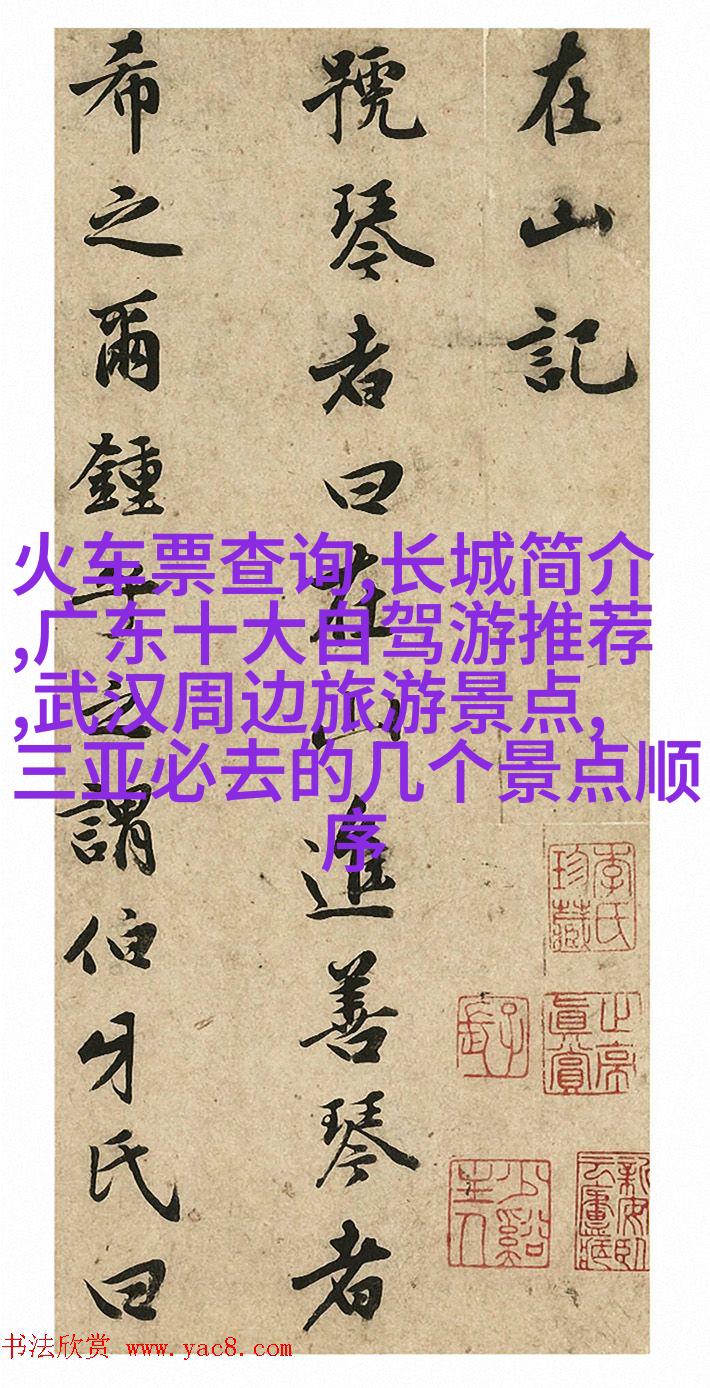 在山記
號琴者曰在山進善琴者
希之爾鍾子之謂伯牙氏曰
火车票查询,长城简介
,广东十大自驾游推荐
,武汉周边旅游景点,
三亚必去的几个景点顺
序
氏珍藏
真賞
少谿主人
书法欣赏 www.yac8.com